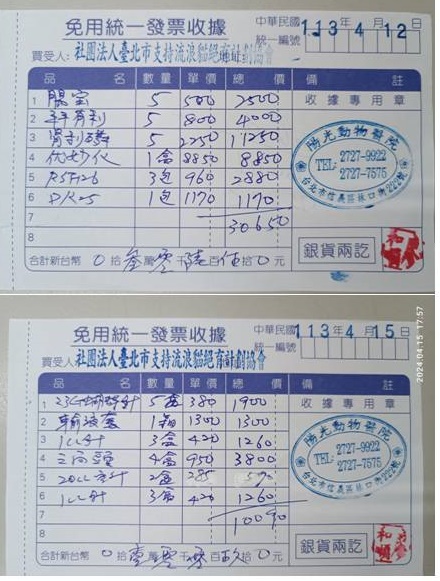 免用統一發票收據
中華民國 113年 4月 12日
統一編號
買受人: 社團法人臺北市支持流浪貓絕育計劃協會
品 名 數量 單價 總 價 備 註
1 腸宝 5 500 2500 收據專用章
2 年有利 5 800 4000
3 腎利磷 5 2250 11250
4 1盒 8850 8850
5 3包 960 2880
6 1包 1170 1170
7 30650
8
陽光動物醫院
TEL: 2727-9922
2727-7575
台北市信義區林口街222號
銀貨兩訖
合計新台幣 0拾參萬零千陸百伍拾0元
免用統一發票收據
中華民國 113年 4月 15日
統一編號
買受人: 社團法人臺北市支持流浪貓絕育計劃協會
品 名 數量 單價 總 價 備 註
1 5盒 380 1900 收據專用章
2 輸液套 1箱 1300 1300
3 1cc針 3盒 420 1260
4 三向頭 4盒 950 3800
5 20cc空針 2盒 285 570
6 1cc針 3盒 420 1260
7 10090
8
陽光動物醫院
TEL: 2727-9922
2727-7575
台北市信義區林口街222號
銀貨兩訖
合計新台幣 0拾壹萬零千零百玖拾0元
2024.04.15 17:57